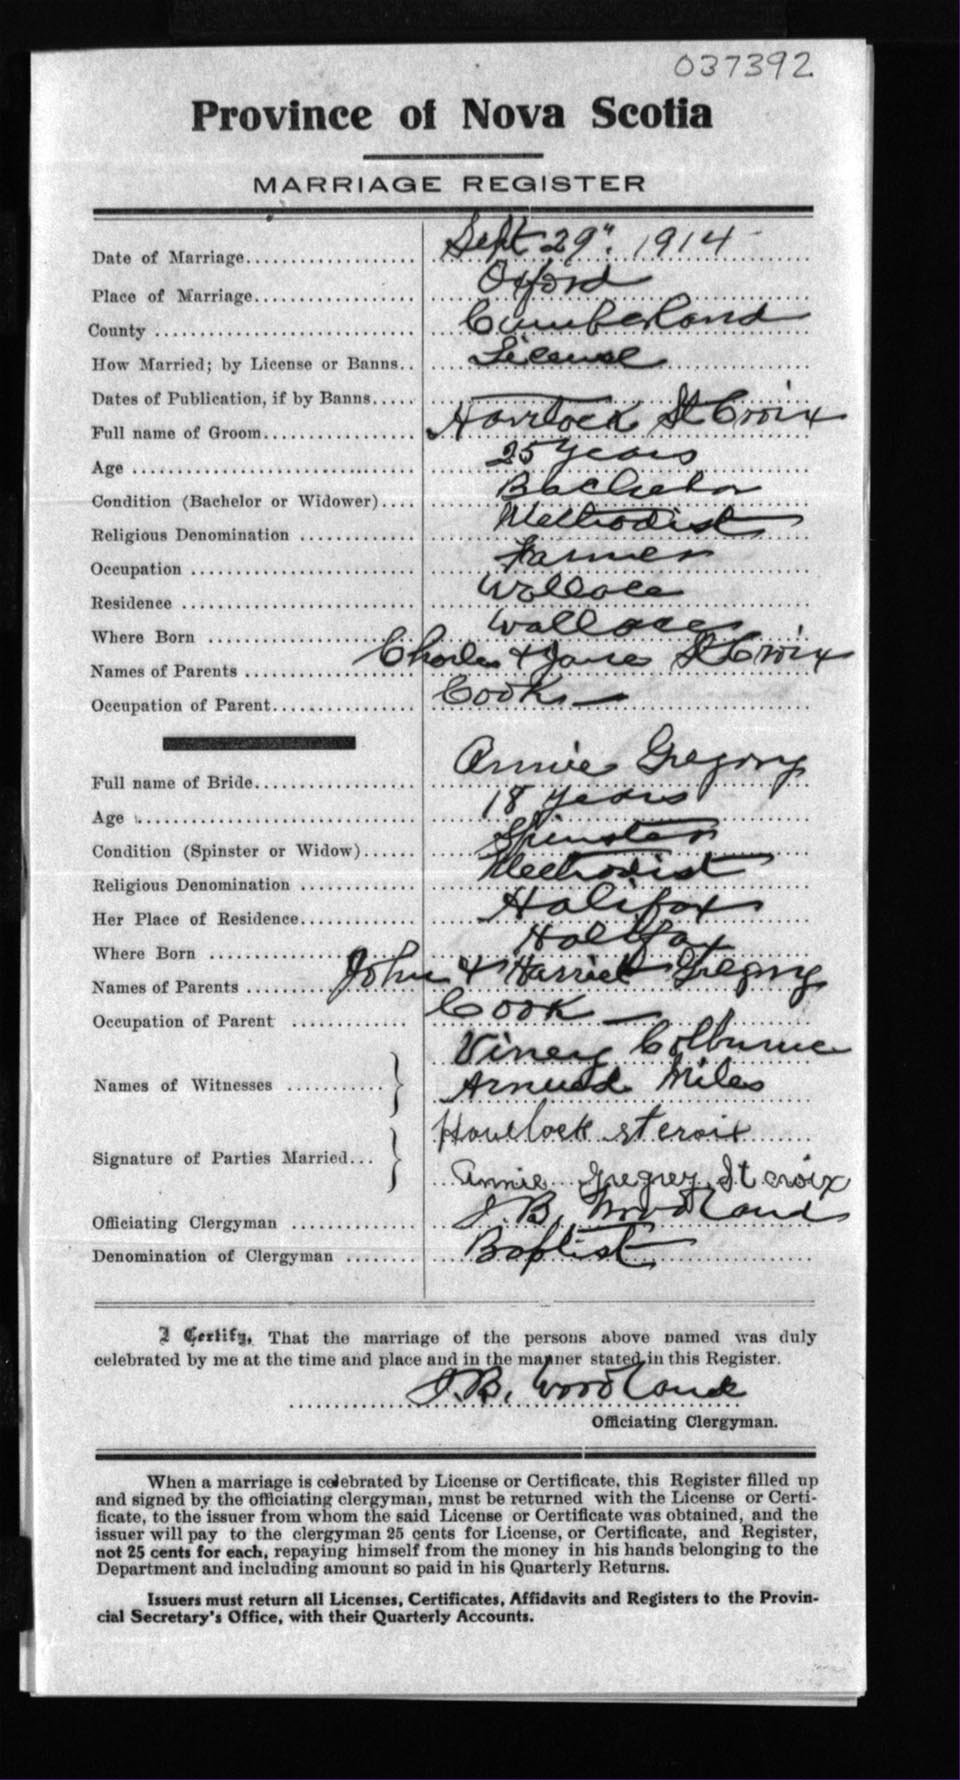 037392
Province of Nova Scotia
MARRIAGE REGISTER
Date of Marriage Sept 29". 1914
Place of Marriage Oxford
County Cumberland
How Married; by License or Banns License
Dates of Publication, if by Banns
Full name of Groom Havelock St Croix
Age 25 years
Condition (Bachelor or Widower) Bachelor
Religious Denomination Methodist
Occupation Farmer
Residence Wallace
Where Born Wallace
Names of Parents Charles & St Croix
Occupation of Parent Cook
Full name of Bride Annie Gregory
Age 18 years
Condition (Spinster or Widow) Spinster
Religious Denomination Methodist
Her Place of Residence Halifax
Where Born Halifax
Names of Parents John & Harriet Gregory
Occupation of Parent Cook
Names of Witnesses Viney Colburne
Miles
Signature of Parties Married Havelock st croix
Annie Gregrey St croix
Officiating Clergyman J. B. Woodland
Denomination of Clergyman Baptist
I Certify, That the marriage of the persons above named was duly
celebrated by me at the time and place and in the manner stated in this Register.
J. B. Woodland
Officiating Clergyman.
When a marriage is celebrated by License or Certificate, this Register filled up
and signed by the officiating clergyman, must be returned with the License or Certi-
ficate, to the issuer from whom the said License or Certificate was obtained, and the
issuer will pay to the clergyman 25 cents for License, or Certificate, and Register,
not 25 cents for each, repaying himself from the money in his hands belonging to the
Department and including amount so paid in his Quarterly Returns.
Issuers must return all Licenses, Certificates, Affidavits and Registers to the Provin-
cial Secretary's Office, with their Quarterly Accounts.